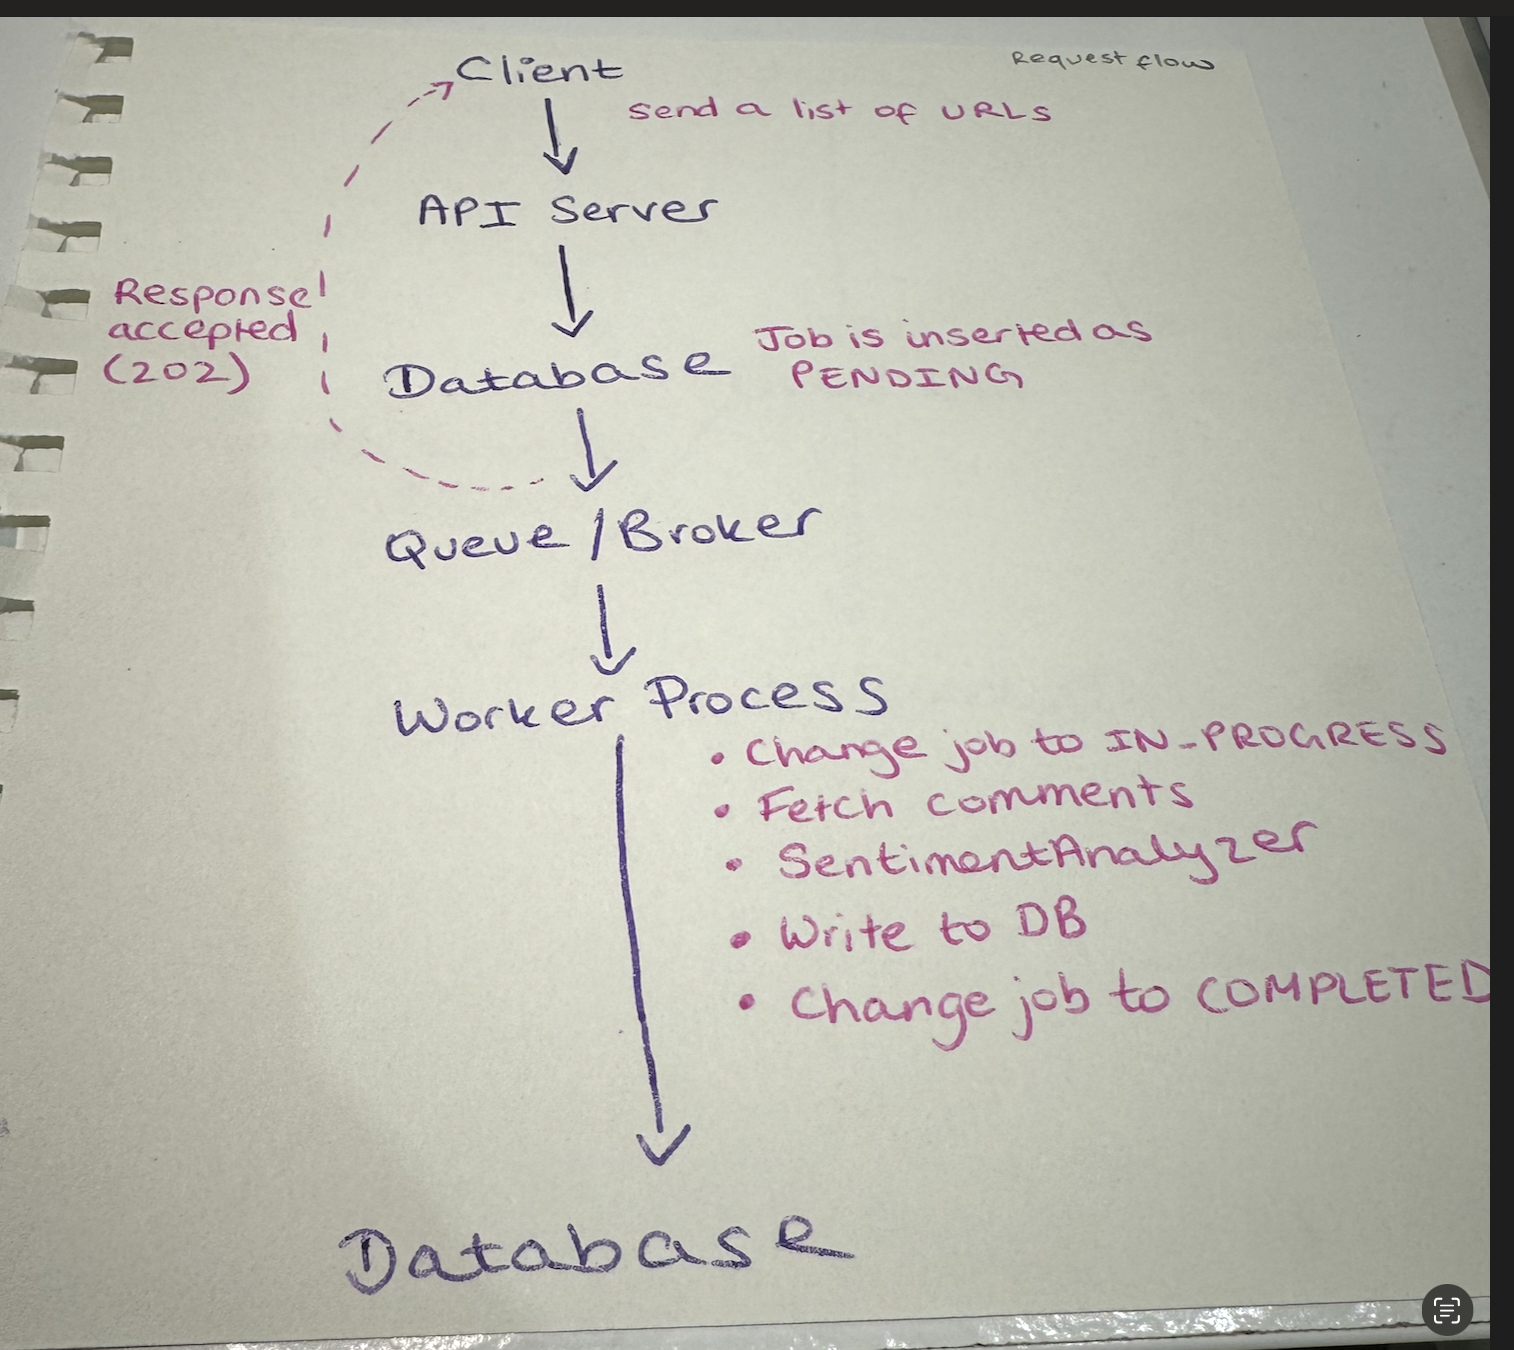 Request flow
Client
Send a list of URLs
API Server
Response
accepted
(202)
Database
Job is inserted as
PENDING
Queue / Broker
Worker Process
• Change job to IN-PROGRESS
• Fetch comments
• SentimentAnalyzer
• Write to DB
• Change job to COMPLETED
Database